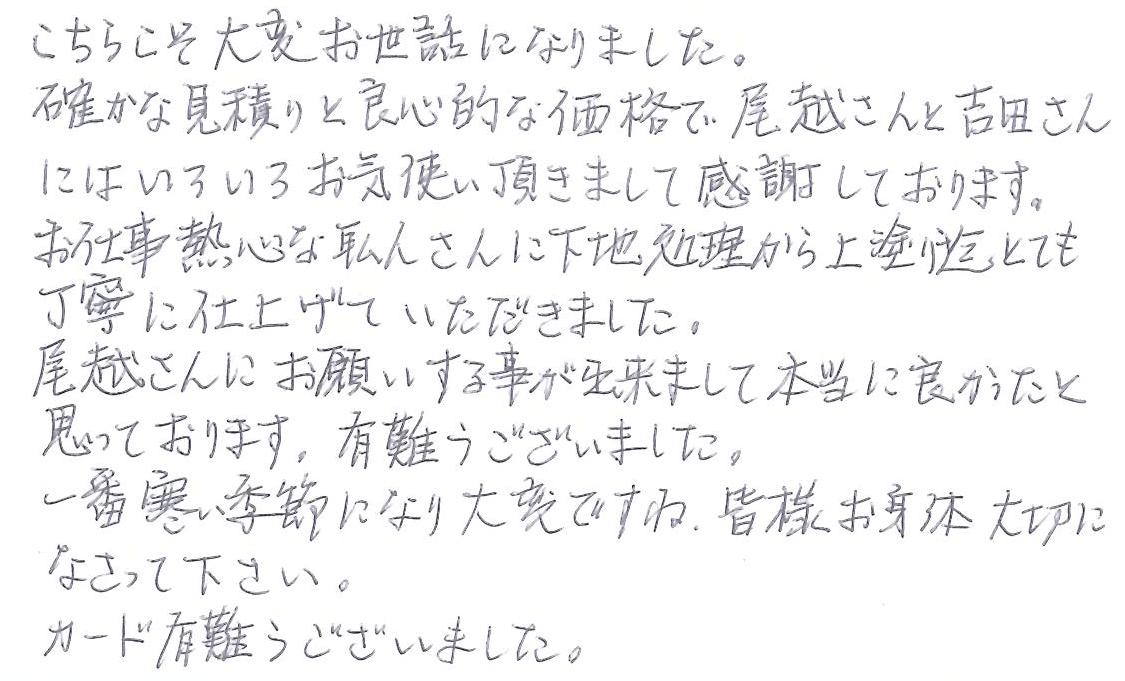 こちらこそ大変お世話になりました。
確かな見積りと良心的な価格で尾越さんと吉田さん
にはいろいろお気使い頂きまして感謝しております。
お仕事熱心な職人さんに下地処理から上塗り迄とても
丁寧に仕上げていただきました。
尾越さんにお願いする事が出来まして本当に良かったと
思っております。有難うございました。
一番寒い季節になり大変ですね、皆様お身体大切に
なさって下さい。
カード有難うございました。